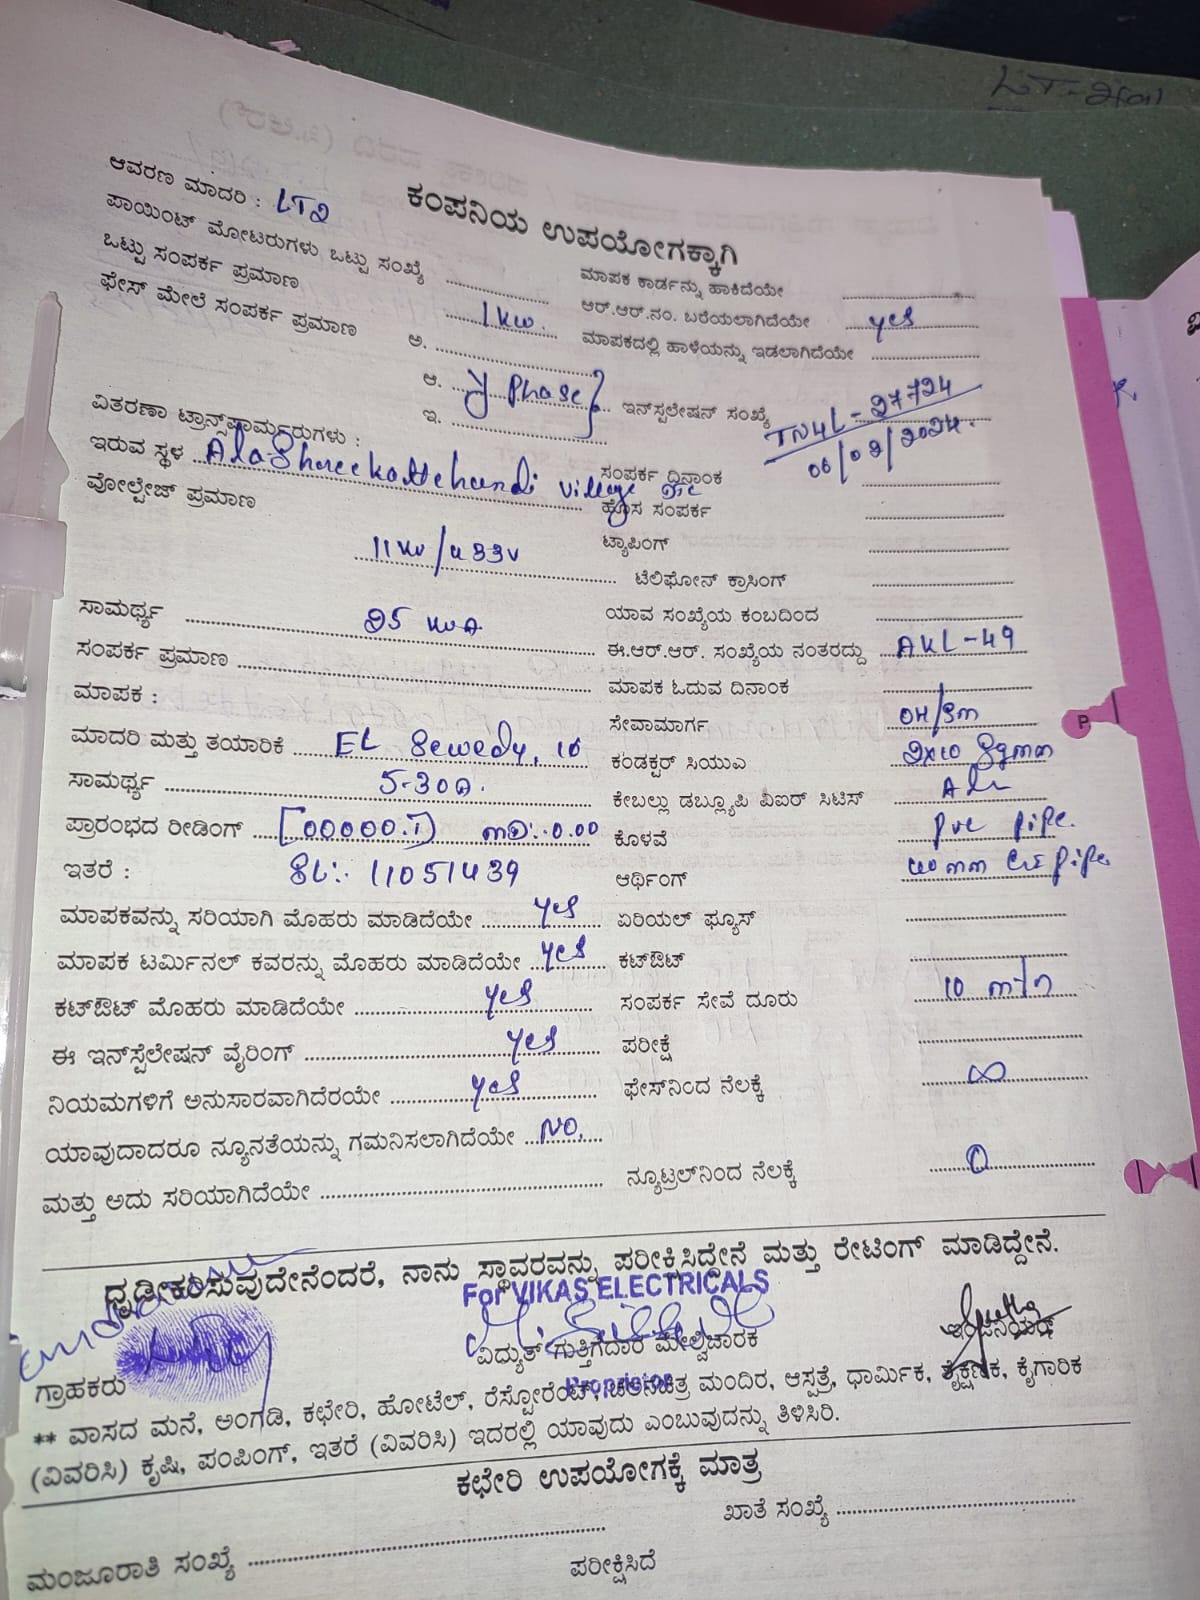 LT-2(a)
ಕಂಪನಿಯ ಉಪಯೋಗಕ್ಕಾಗಿ
ಆವರಣ ಮಾದರಿ : LT2
ಪಾಯಿಂಟ್ ಮೋಟರುಗಳು ಒಟ್ಟು ಸಂಖ್ಯೆ
ಒಟ್ಟು ಸಂಪರ್ಕ ಪ್ರಮಾಣ 1 KW.
ಫೇಸ್ ಮೇಲೆ ಸಂಪರ್ಕ ಪ್ರಮಾಣ ಅ.
ಆ. Phase
ಇ.
ವಿತರಣಾ ಟ್ರಾನ್ಸ್‌ಫಾರ್ಮರುಗಳು :
ಇರುವ ಸ್ಥಳ Village
ವೋಲ್ಟೇಜ್ ಪ್ರಮಾಣ
11KV/433V
ಸಾಮರ್ಥ್ಯ 25 KVA
ಸಂಪರ್ಕ ಪ್ರಮಾಣ
ಮಾಪಕ :
ಮಾದರಿ ಮತ್ತು ತಯಾರಿಕೆ EL Sewedy, 10
ಸಾಮರ್ಥ್ಯ 5-30A.
ಪ್ರಾರಂಭದ ರೀಡಿಂಗ್ [00000.1] MD:-0.00
ಇತರೆ : SL:- 11051439
ಮಾಪಕವನ್ನು ಸರಿಯಾಗಿ ಮೊಹರು ಮಾಡಿದೆಯೇ yes
ಮಾಪಕ ಟರ್ಮಿನಲ್ ಕವರನ್ನು ಮೊಹರು ಮಾಡಿದೆಯೇ yes
ಕಟ್‌ಔಟ್ ಮೊಹರು ಮಾಡಿದೆಯೇ yes
ಈ ಇನ್‌ಸ್ಪೆಲೇಷನ್ ವೈರಿಂಗ್ yes
ನಿಯಮಗಳಿಗೆ ಅನುಸಾರವಾಗಿದೆರಯೇ yes
ಯಾವುದಾದರೂ ನ್ಯೂನತೆಯನ್ನು ಗಮನಿಸಲಾಗಿದೆಯೇ NO,
ಮತ್ತು ಅದು ಸರಿಯಾಗಿದೆಯೇ
ಮಾಪಕ ಕಾರ್ಡನ್ನು ಹಾಕಿದೆಯೇ
ಆರ್.ಆರ್.ನಂ. ಬರೆಯಲಾಗಿದೆಯೇ yes
ಮಾಪಕದಲ್ಲಿ ಹಾಳೆಯನ್ನು ಇಡಲಾಗಿದೆಯೇ
ಇನ್‌ಸ್ಪಲೇಷನ್ ಸಂಖ್ಯೆ TN4L-27724
06/02/2024.
ಸಂಪರ್ಕ ದಿನಾಂಕ
ಹೊಸ ಸಂಪರ್ಕ
ಟ್ಯಾಪಿಂಗ್
ಟೆಲಿಫೋನ್ ಕ್ರಾಸಿಂಗ್
ಯಾವ ಸಂಖ್ಯೆಯ ಕಂಬದಿಂದ
ಈ.ಆರ್.ಆರ್. ಸಂಖ್ಯೆಯ ನಂತರದ್ದು AKL-49
ಮಾಪಕ ಓದುವ ದಿನಾಂಕ
ಸೇವಾಮಾರ್ಗ OH/SM
ಕಂಡಕ್ಟರ್ ಸಿಯುಎ 2X10 Sqmm
ಕೇಬಲ್ಲು ಡಬ್ಲ್ಯೂಪಿ ವಿಐರ್ ಸಿಟಿಸ್ Alu
ಕೊಳವೆ pvc pipe.
ಆರ್ಥಿಂಗ್ 40mm pipe
ಏರಿಯಲ್ ಫ್ಯೂಸ್
ಕಟ್‌ಔಟ್
ಸಂಪರ್ಕ ಸೇವೆ ದೂರು 10 mtr
ಪರೀಕ್ಷೆ
ಫೇಸ್‌ನಿಂದ ನೆಲಕ್ಕೆ ∞
ನ್ಯೂಟ್ರಲ್‌ನಿಂದ ನೆಲಕ್ಕೆ 0
ಧೃಡೀಕರಿಸುವುದೇನೆಂದರೆ, ನಾನು ಸ್ಥಾವರವನ್ನು ಪರೀಕ್ಷಿಸಿದ್ದೇನೆ ಮತ್ತು ರೇಟಿಂಗ್ ಮಾಡಿದ್ದೇನೆ.
For VIKAS ELECTRICALS
ಗ್ರಾಹಕರು ವಿದ್ಯುತ್ ಗುತ್ತಿಗೆದಾರ ಮೇಲ್ವಿಚಾರಕ ಇಂಜಿನಿಯರ್
Proprietor
** ವಾಸದ ಮನೆ, ಅಂಗಡಿ, ಕಛೇರಿ, ಹೋಟೆಲ್, ರೆಸ್ಟೋರೆಂಟ್, ಚಲನಚಿತ್ರ ಮಂದಿರ, ಆಸ್ಪತ್ರೆ, ಧಾರ್ಮಿಕ, ಶೈಕ್ಷಣಿಕ, ಕೈಗಾರಿಕ
(ವಿವರಿಸಿ) ಕೃಷಿ, ಪಂಪಿಂಗ್, ಇತರೆ (ವಿವರಿಸಿ) ಇದರಲ್ಲಿ ಯಾವುದು ಎಂಬುವುದನ್ನು ತಿಳಿಸಿರಿ.
ಕಛೇರಿ ಉಪಯೋಗಕ್ಕೆ ಮಾತ್ರ
ಮಂಜೂರಾತಿ ಸಂಖ್ಯೆ ಖಾತೆ ಸಂಖ್ಯೆ
ಪರೀಕ್ಷಿಸಿದೆ